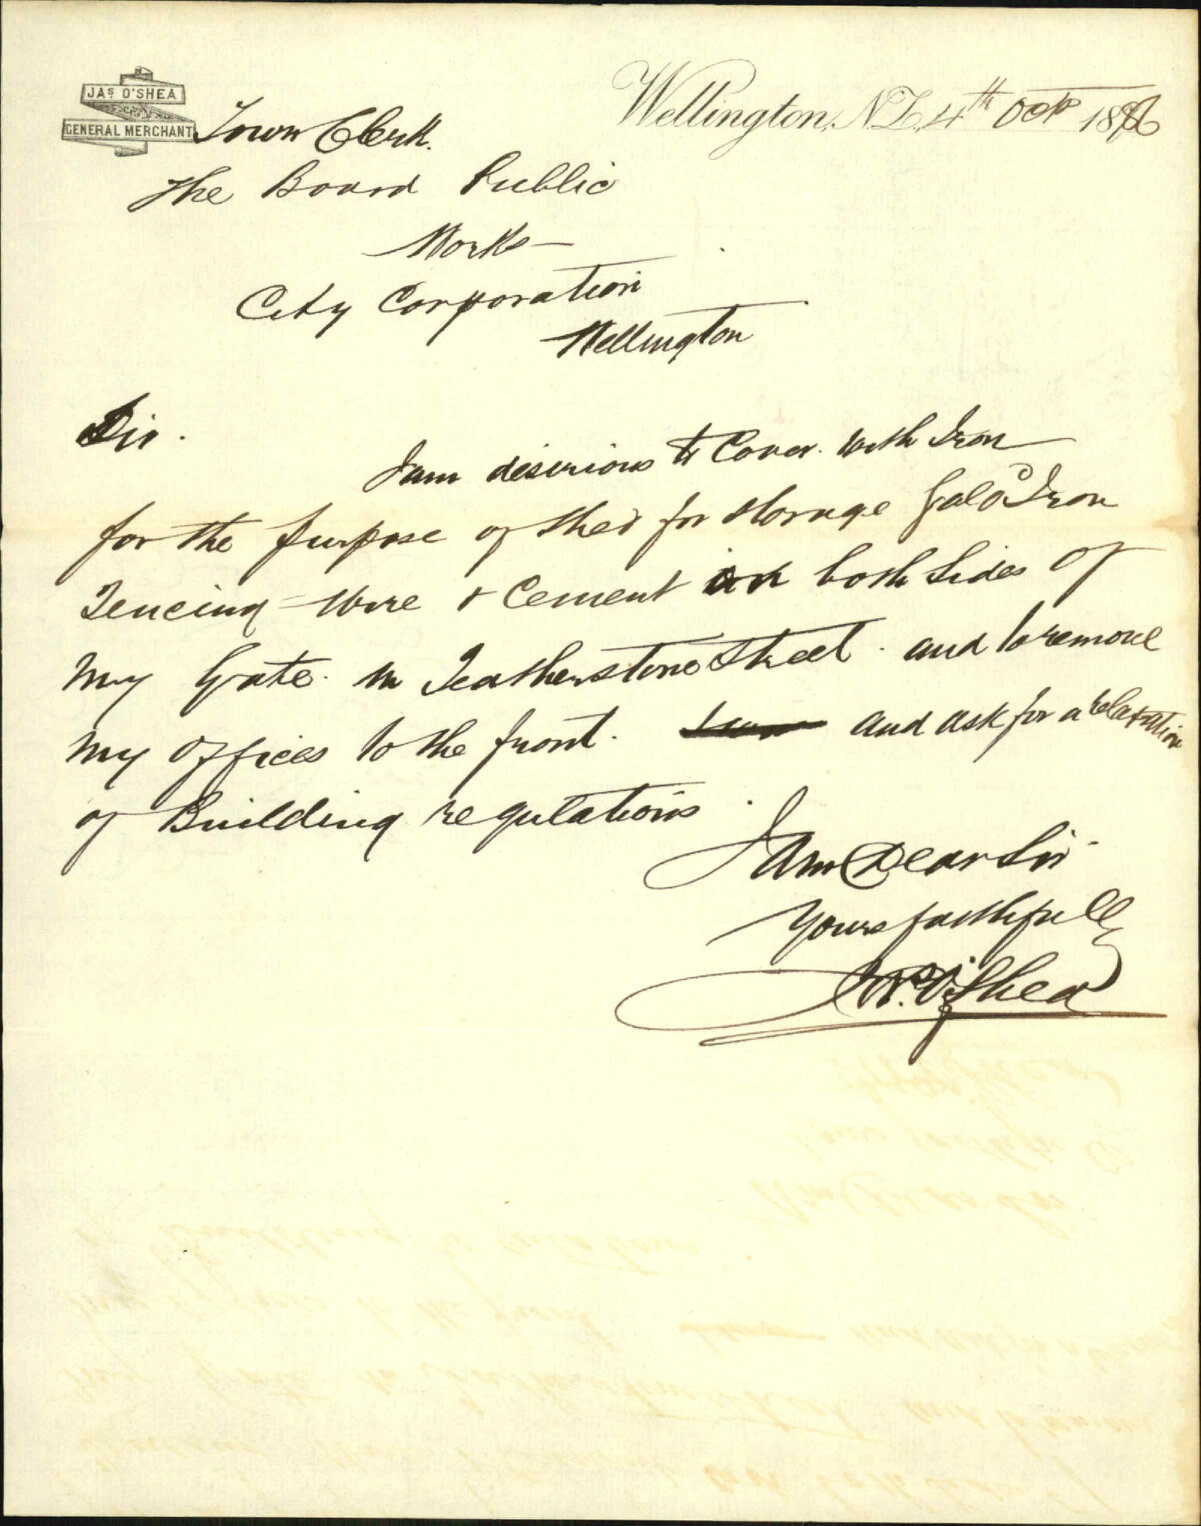 JAS O'SHEA
GENERAL MERCHANT
Wellington, N.Z. 4th Octr 1896
Town Clerk.
The Board Public
Works -
City Corporation
Wellington
Sir.
I am desirious to Cover with Iron
for the purpose of shed for storage Galvd Iron
Fencing wire & Cement on both sides of
my Gate in Featherstone Street. and to remove
my offices to the front. and ask for a relaxation
of Building regulations.
I am Dear Sir
Yours faithfully
Jas. O'Shea